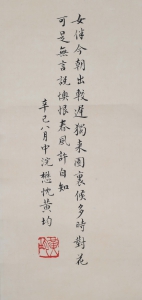 女伴今朝出較遲獨來園裏候多時對花
可是無言說懊恨春風許自知
辛巳八月中浣懋忱黃均